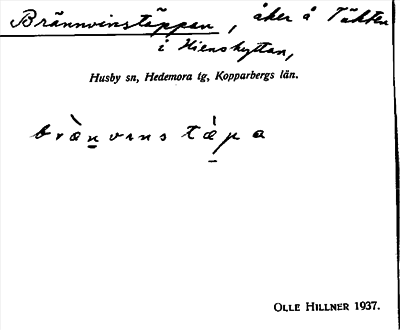 Brännvinstäppan, åker å Täkten
i Hienshyttan,
Husby sn, Hedemora tg, Kopparbergs län.
bræ̀n̲vɩnstæ̀pa
OLLE HILLNER 1937.